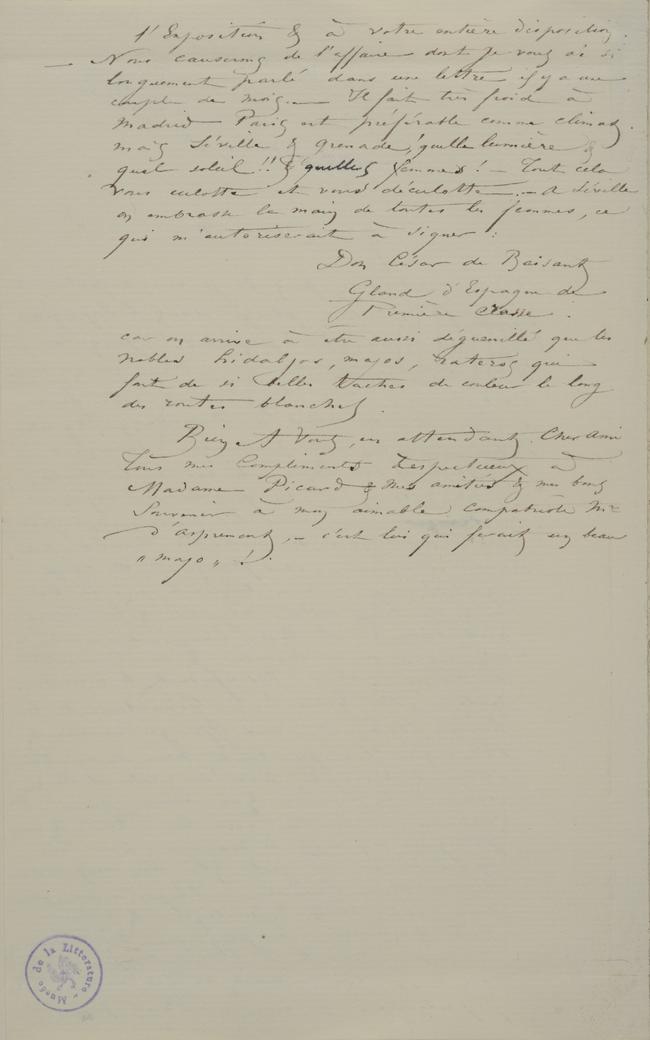 l'Exposition & à votre entière disposition.
— Nous causerons de l'affaire dont je vous ai si
longuement parlé dans une lettre il y a une
couple de mois. — Il fait très froid à
Madrid — Paris est préférable comme climat,
mais Séville & grenade! quelle lumière &
quel soleil!! & quelles femmes! — Tout cela
vous culotte et vous déculotte. — A Séville
on embrasse la main de toutes les femmes, ce
qui m'autoriserait à signer :
Don César de Baisant
Gland d'Espagne de
Première Classe.
car on arrive à être aussi déguenillé que les
nobles hidalgos, majos, rateros qui
font de si belles taches de couleur le long
des routes blanches.
Bien A Vous, en attendant, Cher Ami
Tous mes Compliments respectueux à
Madame Picard & mes amitiés & mes bons
Souvenir à mon aimable compatriote Mr
d'Aspremont, — c'est lui qui ferait un beau
" majo " !.
Musée de la Littérature